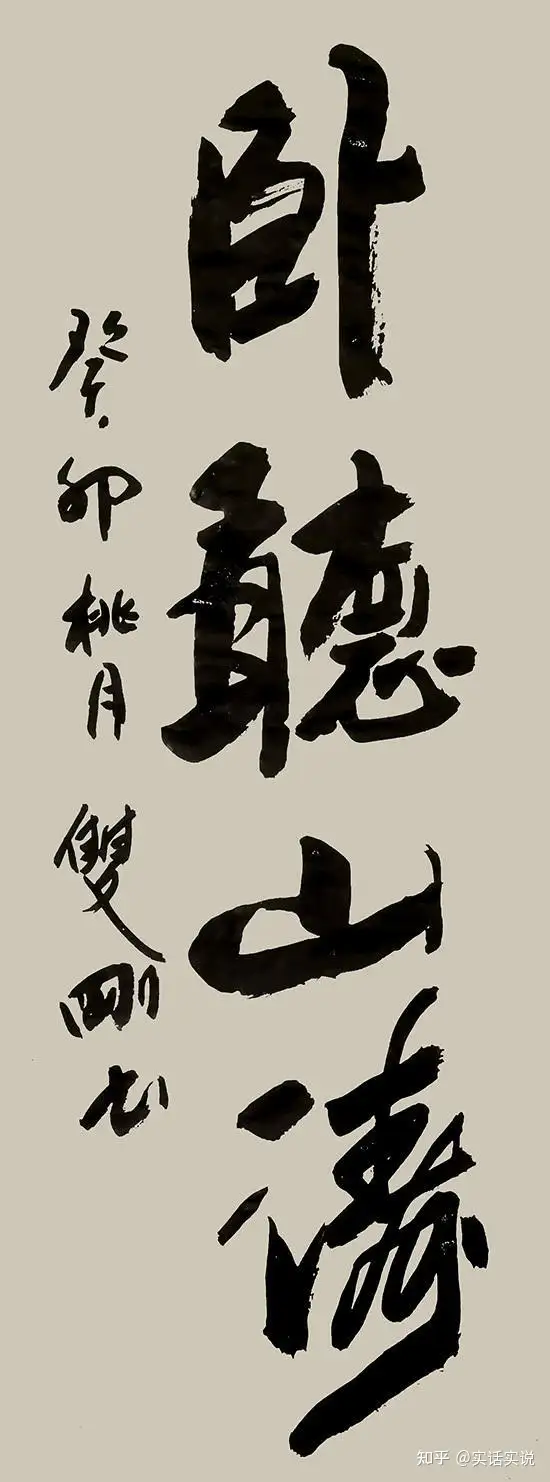 卧聽山濤
癸卯桃月雙剛书
知乎 @实话实说